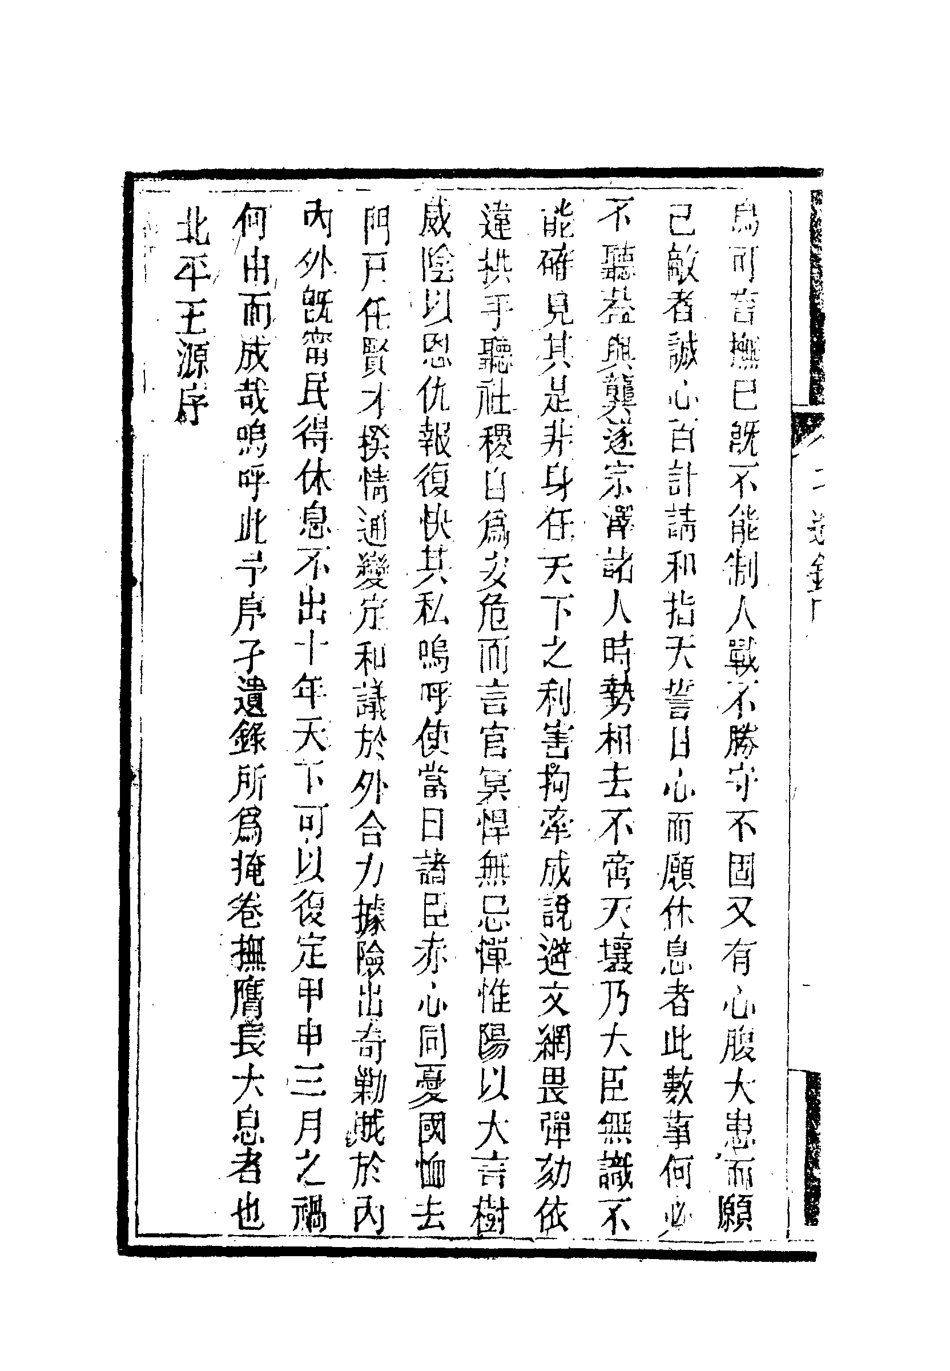 烏可言撫巳既不能制人戰不勝守不固又有心腹大患而願
己敵者誠心百計請和指天誓日心而願休息者此數事何必
不聽葢與龔遂宗澤諸人時勢相去不啻天壤乃大臣無識不
能確見其是非身任天下之利害拘牽成說避文網畏彈劾依
違拱手聽社稷自爲安危而言官冥悍無忌憚惟陽以大言樹
威陰以恩仇報復快其私嗚呼使當日諸臣赤心同憂國恤去
門戸任賢才揆情通變定和議於外合力據險出奇勦賊於內
內外既甯民得休息不出十年天下可以復定甲申三月之禍
何由而成哉嗚呼此予序孑遺錄所爲掩卷撫膺長大息者也
北平王源序
孑遺錄序